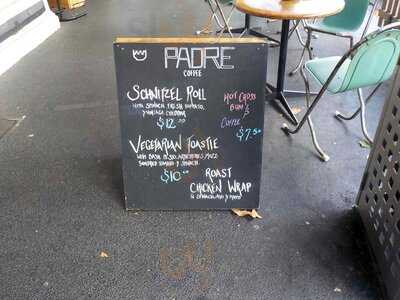 PADRE
COFFEE
SCHNITZEL ROLL
WITH SPINACH, FRESH TOMATO,
VINTAGE CHEDDAR
$12.00
HOT CROSS
BUN &
COFFEE
$7.50
VEGETARIAN TOASTIE
WITH
SPINACH
$10
ROAST
CHICKEN WRAP
&
MAYO